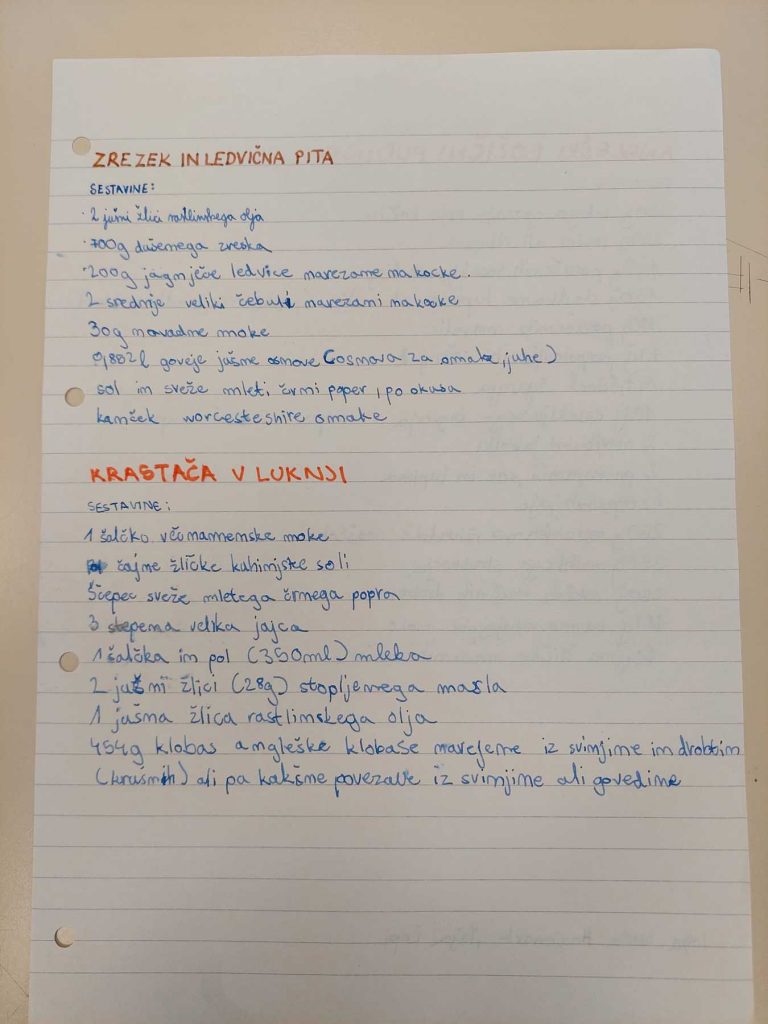 ZREZEK IN LEDVIČNA PITA
SESTAVINE:
· 2 jušni žlici rastlinskega olja
· 700g dušenega zrezka
· 200g jagnječe ledvice narezane na kocke.
2 srednje veliki čebuli narezani na kocke
30g navadne moke
0,802l goveje jušne osnove (osnova za omake, juhe)
sol in sveže mleti, črni poper, po okusu
kanček worcesteshire omake
KRASTAČA V LUKNJI
SESTAVINE:
1 šalčko večnamenske moke
čajne žličke kuhinjske soli
Ščepec sveže mletega črnega popra
3 stepena velika jajca
1 šalčka in pol (350ml) mleka
2 jušni žlici (28g) stopljenega masla
1 jušna žlica rastlinskega olja
454g klobas angleške klobase narejene iz svinjine in drobbin
(krušnih) ali pa kakšne povezave iz svinjine ali govedine